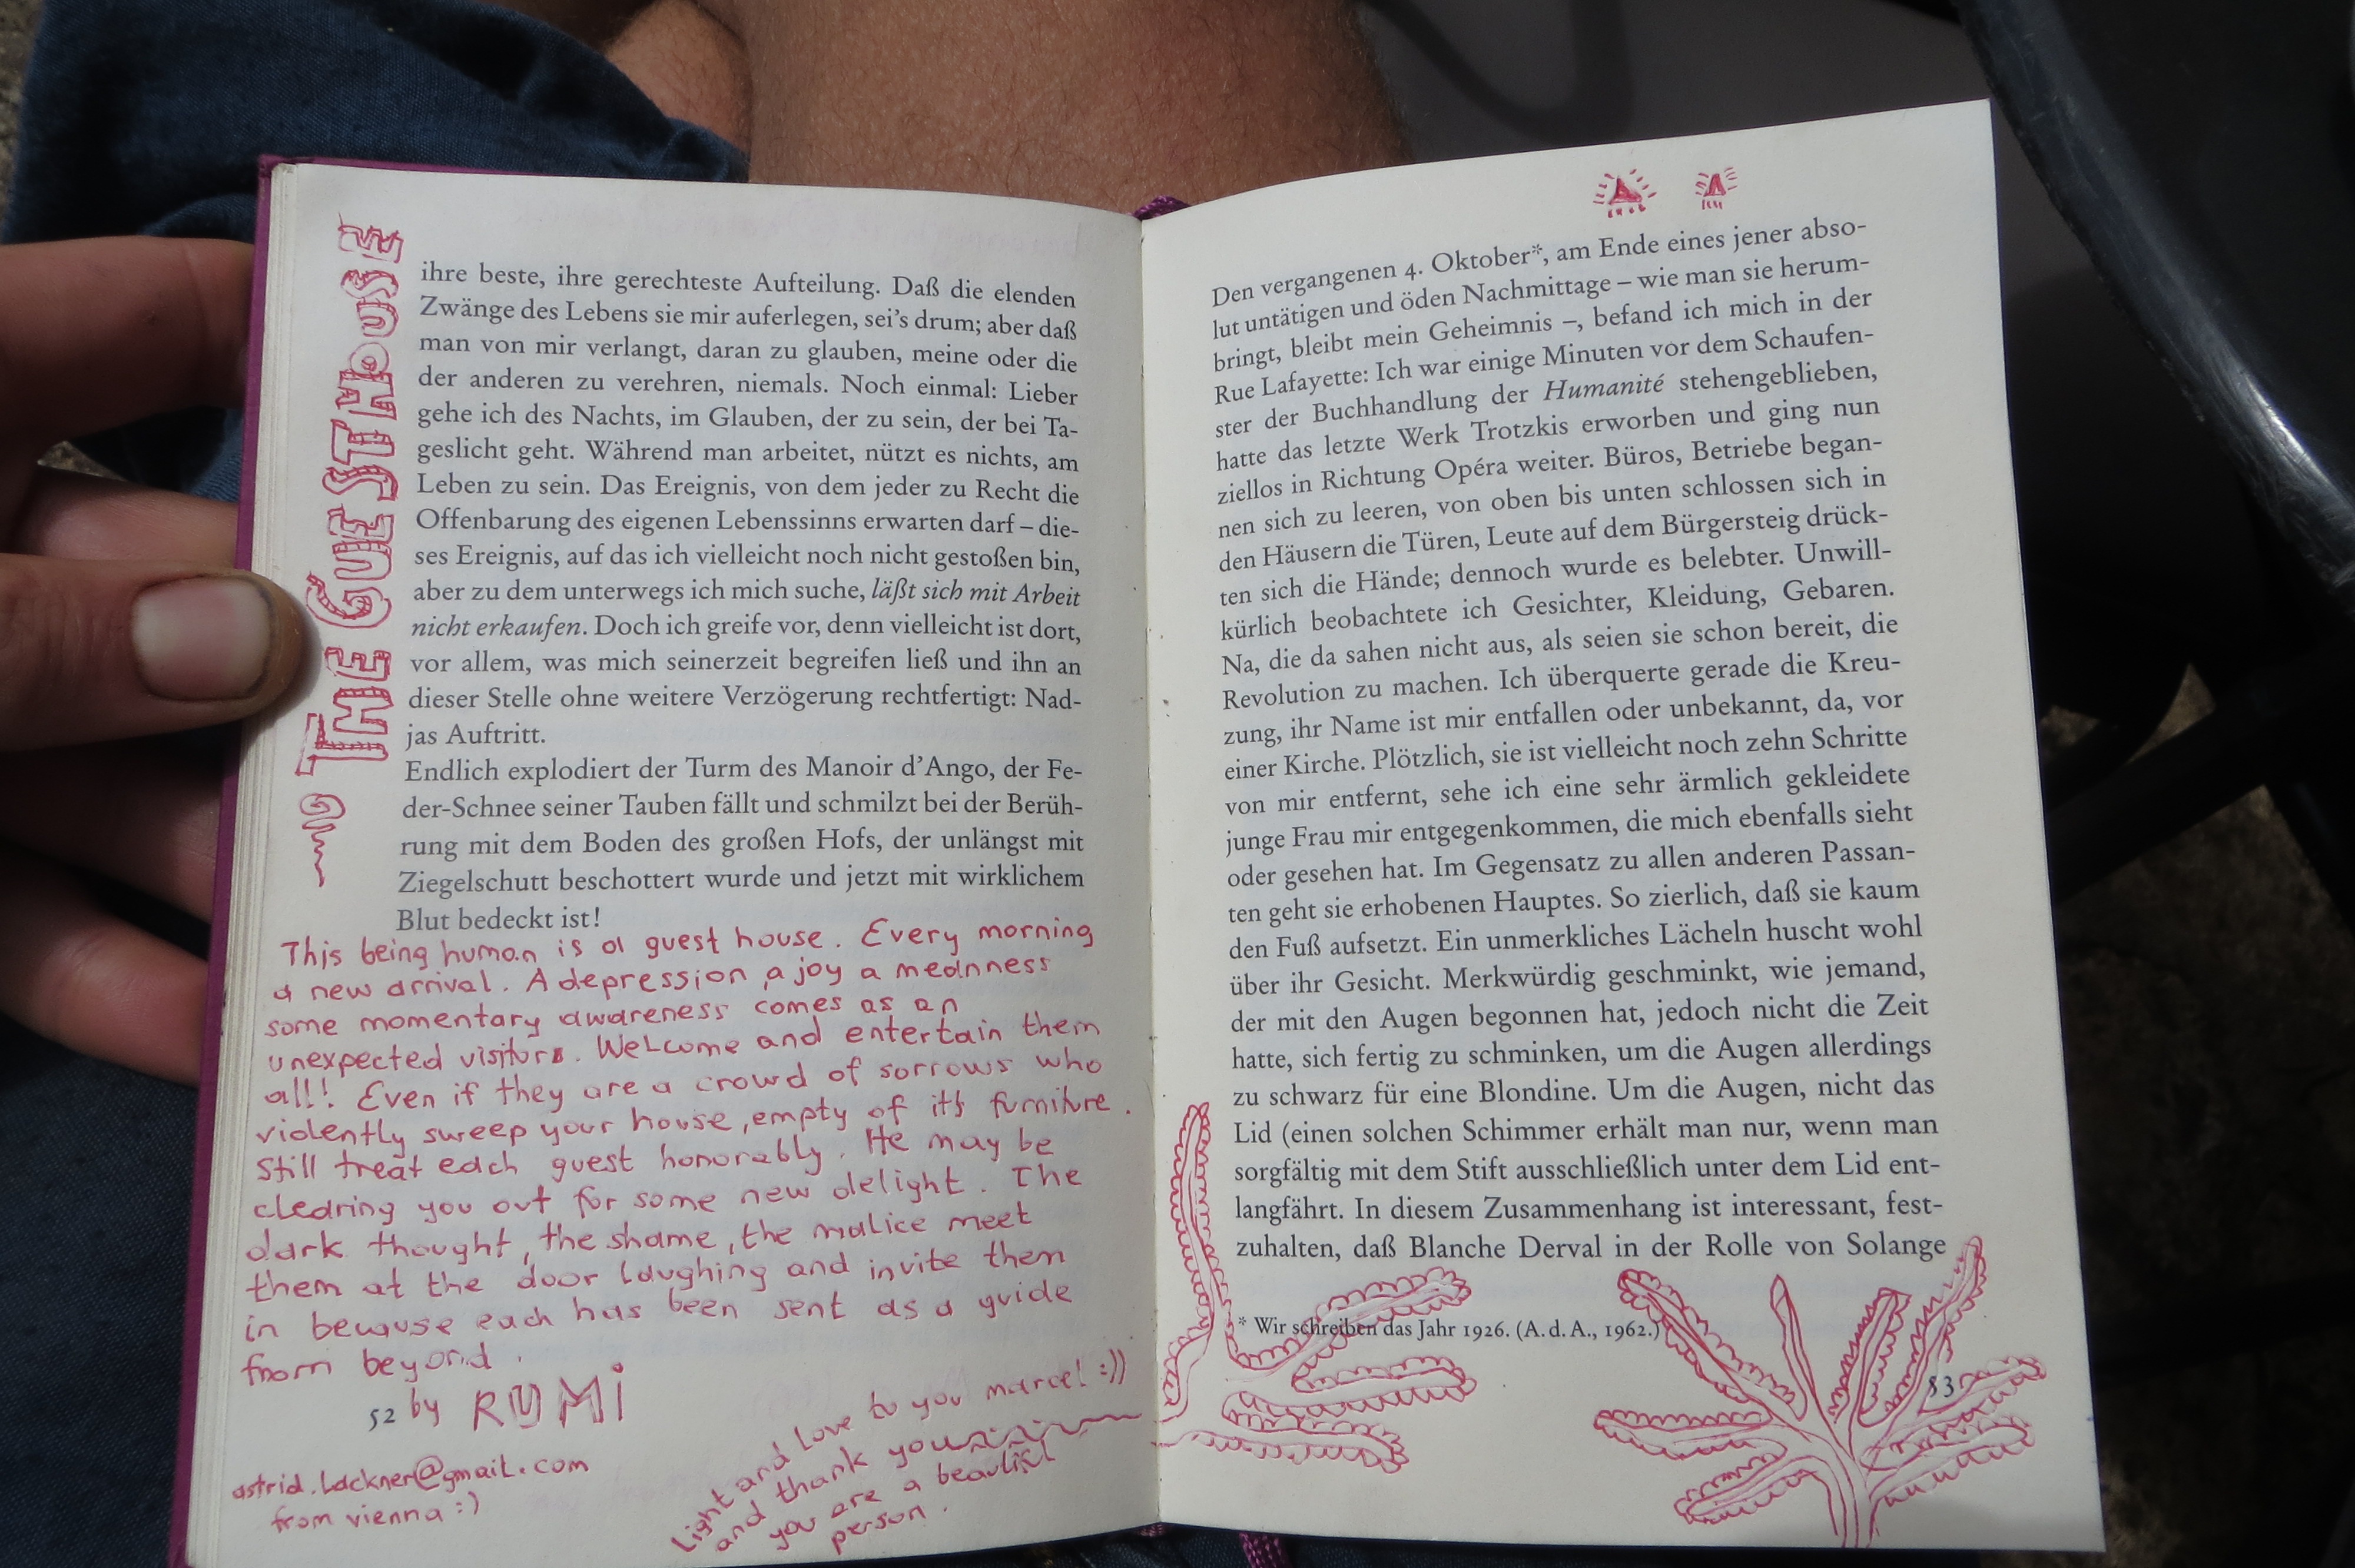 THE GUESTHOUSE
ihre beste, ihre gerechteste Aufteilung. Daß die elenden
Zwänge des Lebens sie mir auferlegen, sei's drum; aber daß
man von mir verlangt, daran zu glauben, meine oder die
der anderen zu verehren, niemals. Noch einmal: Lieber
gehe ich des Nachts, im Glauben, der zu sein, der bei Ta-
geslicht geht. Während man arbeitet, nützt es nichts, am
Leben zu sein. Das Ereignis, von dem jeder zu Recht die
Offenbarung des eigenen Lebenssinns erwarten darf – die-
ses Ereignis, auf das ich vielleicht noch nicht gestoßen bin,
aber zu dem unterwegs ich mich suche, läßt sich mit Arbeit
nicht erkaufen. Doch ich greife vor, denn vielleicht ist dort,
vor allem, was mich seinerzeit begreifen ließ und ihn an
dieser Stelle ohne weitere Verzögerung rechtfertigt: Nad-
jas Auftritt.
Endlich explodiert der Turm des Manoir d'Ango, der Fe-
der-Schnee seiner Tauben fällt und schmilzt bei der Berüh-
rung mit dem Boden des großen Hofs, der unlängst mit
Ziegelschutt beschottert wurde und jetzt mit wirklichem
Blut bedeckt ist!
This being human is a guest house. Every morning
a new arrival. A depression, a joy a meanness
some momentary awareness comes as an
unexpected visitors. Welcome and entertain them
all!! Even if they are a crowd of sorrows who
violently sweep your house, empty of its furniture.
Still treat each guest honorably. He may be
clearing you out for some new delight. The
dark thought, the shame, the malice meet
them at the door laughing and invite them
in because each has been sent as a guide
from beyond.
52 by RUMi
astrid.lackner@gmail.com
from vienna :)
Light and Love to you marcel :))
and thank you
you are a beautiful
person.
Den vergangenen 4. Oktober*, am Ende eines jener abso-
lut untätigen und öden Nachmittage – wie man sie herum-
bringt, bleibt mein Geheimnis –, befand ich mich in der
Rue Lafayette: Ich war einige Minuten vor dem Schaufen-
ster der Buchhandlung der Humanité stehengeblieben,
hatte das letzte Werk Trotzkis erworben und ging nun
ziellos in Richtung Opéra weiter. Büros, Betriebe began-
nen sich zu leeren, von oben bis unten schlossen sich in
den Häusern die Türen, Leute auf dem Bürgersteig drück-
ten sich die Hände; dennoch wurde es belebter. Unwill-
kürlich beobachtete ich Gesichter, Kleidung, Gebaren.
Na, die da sahen nicht aus, als seien sie schon bereit, die
Revolution zu machen. Ich überquerte gerade die Kreu-
zung, ihr Name ist mir entfallen oder unbekannt, da, vor
einer Kirche. Plötzlich, sie ist vielleicht noch zehn Schritte
von mir entfernt, sehe ich eine sehr ärmlich gekleidete
junge Frau mir entgegenkommen, die mich ebenfalls sieht
oder gesehen hat. Im Gegensatz zu allen anderen Passan-
ten geht sie erhobenen Hauptes. So zierlich, daß sie kaum
den Fuß aufsetzt. Ein unmerkliches Lächeln huscht wohl
über ihr Gesicht. Merkwürdig geschminkt, wie jemand,
der mit den Augen begonnen hat, jedoch nicht die Zeit
hatte, sich fertig zu schminken, um die Augen allerdings
zu schwarz für eine Blondine. Um die Augen, nicht das
Lid (einen solchen Schimmer erhält man nur, wenn man
sorgfältig mit dem Stift ausschließlich unter dem Lid ent-
langfährt. In diesem Zusammenhang ist interessant, fest-
zuhalten, daß Blanche Derval in der Rolle von Solange
* Wir schreiben das Jahr 1926. (A. d. A., 1962.)
53